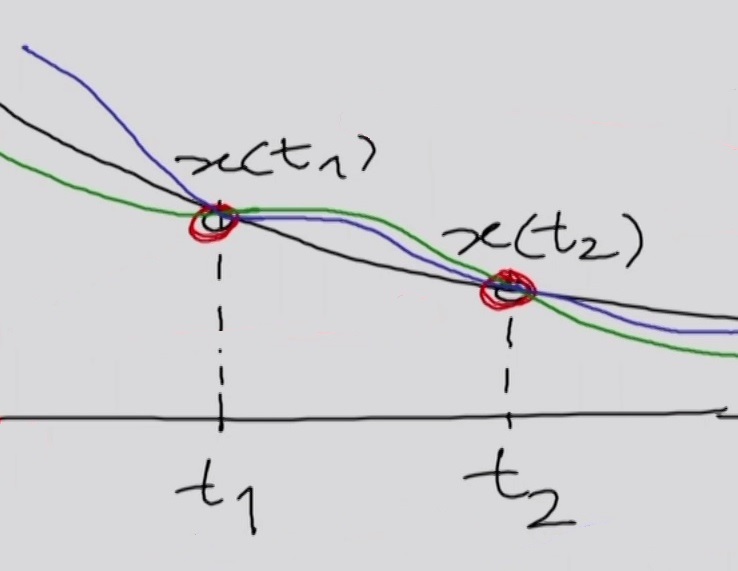 x(t₁)
x(t₂)
t₁
t₂